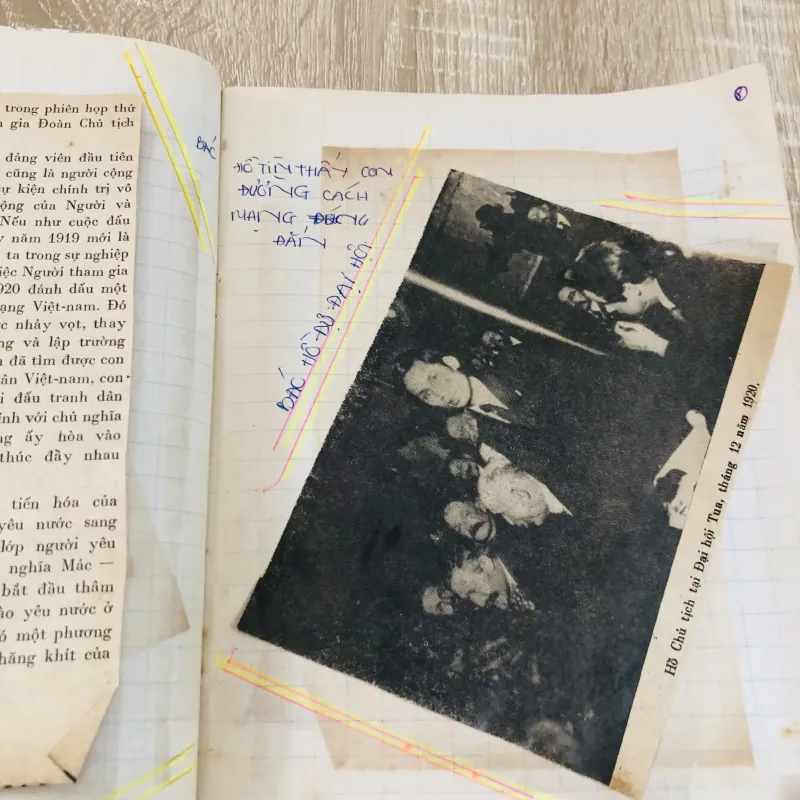 trong phiên họp thứ
gia Đoàn Chủ tịch
đảng viên đầu tiên
cũng là người cộng
sự kiện chính trị vô
động của Người và
Nếu như cuộc đấu
năm 1919 mới là
ta trong sự nghiệp
việc Người tham gia
1920 đánh dấu một
mạng Việt-nam. Đó
nhảy vọt, thay
và lập trường
đã tìm được con
dân Việt-nam, con
đấu tranh dân
với chủ nghĩa
ấy hòa vào
thúc đẩy nhau
tiến hóa của
yêu nước sang
lớp người yêu
nghĩa Mác —
bắt đầu thâm
yêu nước ở
một phương
khăng khít của
8
BÁC
HỒ TÌM THẤY CON
ĐƯỜNG CÁCH
MẠNG ĐÚNG
ĐẮN
BÁC HỒ DỰ ĐẠI HỘI
Hồ Chủ tịch tại Đại hội Tua, tháng 12 năm 1920.